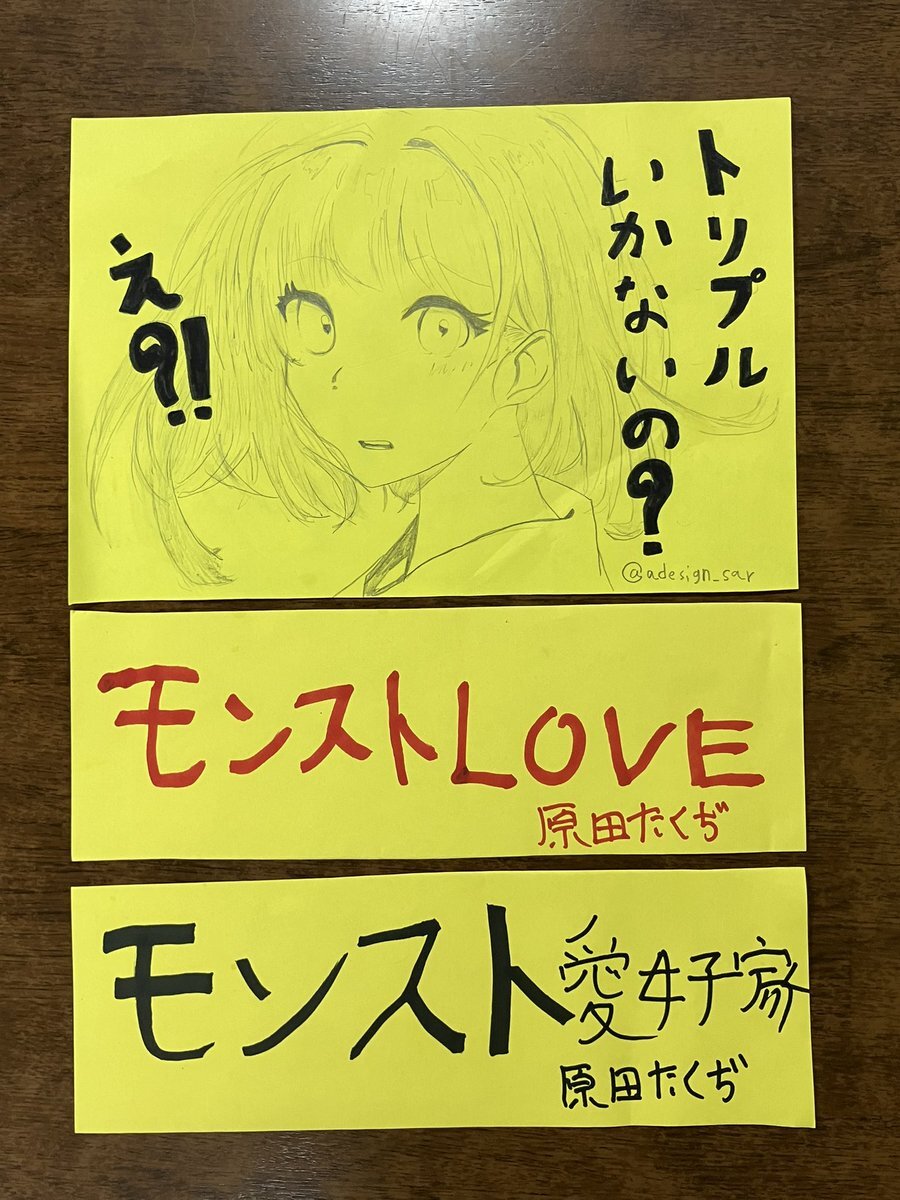 トリプル
いかないの?
え?!
@adesign_sar
モンストLOVE
原田たくぢ
モンスト愛好家
原田たくぢ